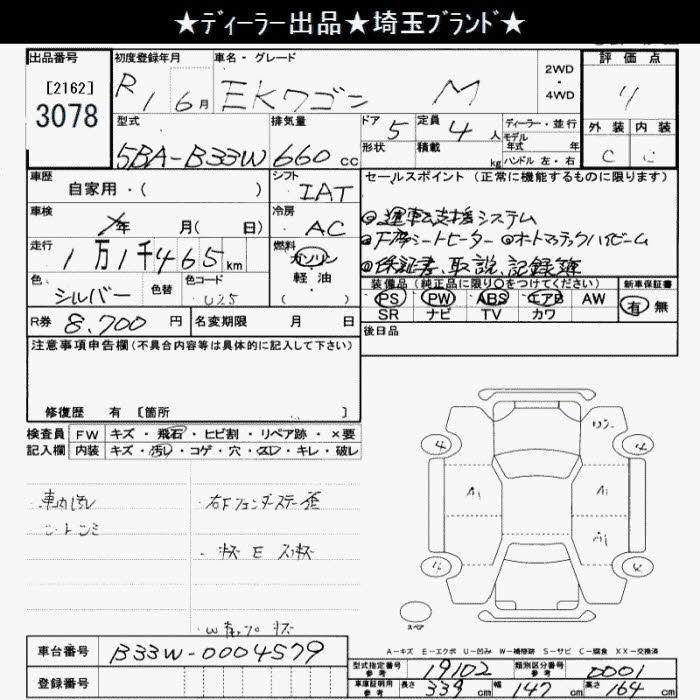 ★ディーラー出品★埼玉ブランド★
出品番号
[2162]
3078
初度登録年月
R1 6月
車名・グレード
EKワゴン M
2WD
・
4WD
評価点
外装 内装
C C
型式
5BA-B33W
排気量
660 cc
ドア 5
形状
定員 4 人
積載 kg
ディーラー・並行
モデル
年式 年
ハンドル 左・右
車歴
自家用・( )
シフト
IAT
車検
年 月( 日)
冷房
AC
走行
1万1千465 km
燃料
ガソリン
軽油
( )
色
シルバー
色替
色コード
U25
R券 8,700 円
名変期限 月 日
セールスポイント (正常に機能するものに限ります)
◎運転支援システム
◎下席シートヒーター ◎オートマチックハイビーム
◎保証書、取説、記録簿
装備品(純正品に限り○をつけてください)
新車保証書
PS PW ABS エアB AW
SR ナビ TV カワ
有 無
後日品
注意事項申告欄(不具合内容等は具体的に記入して下さい)
修復歴 有 [箇所 ]
検査員
記入欄
FW キズ・飛石・ヒビ割・リペア跡・×要
内装 キズ・汚レ・コゲ・穴・スレ・キレ・破レ
車内汚レ
シートシミ
右Fフェンダーステー歪
A1
A1
スペア
A-キズ E-エクボ U-凹み W-補修跡 S-サビ C-腐食 XX-交換済
車台番号 B33W-0004579
登録番号
型式指定番号
参考
19102
類別区分番号
参考
0001
車庫証明用
参考
長さ 339 cm 幅 147 cm 高さ 164 cm